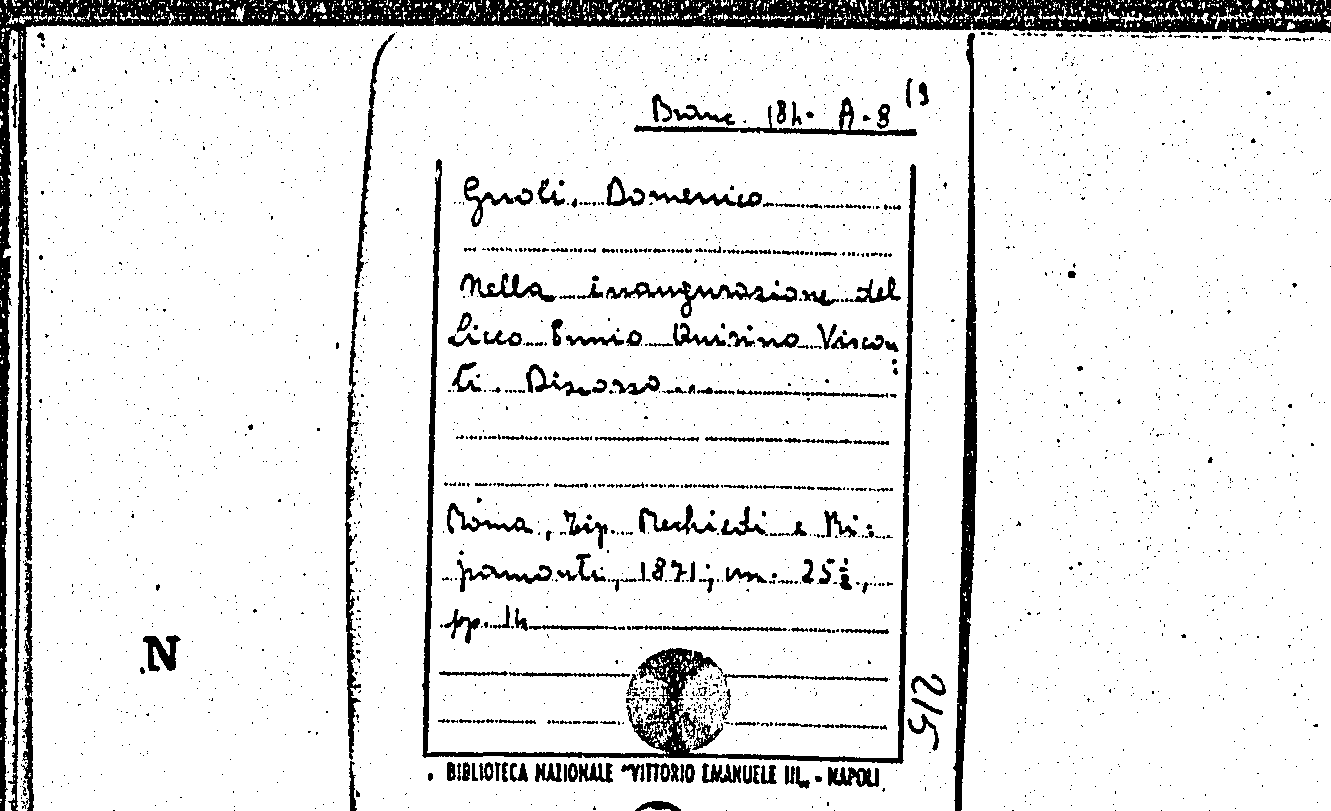 Branc. 184. A-8 (9
Gnoli, Domenico
Nella inaugurazione del
Liceo Ennio Quirino Viscon:
ti. Discorso...
Roma, Tip. Mechieti e Ri:
pamonti, 1871; cm. 25½,
pp. 14
N
215
BIBLIOTECA NAZIONALE "VITTORIO EMANUELE III„ - NAPOLI